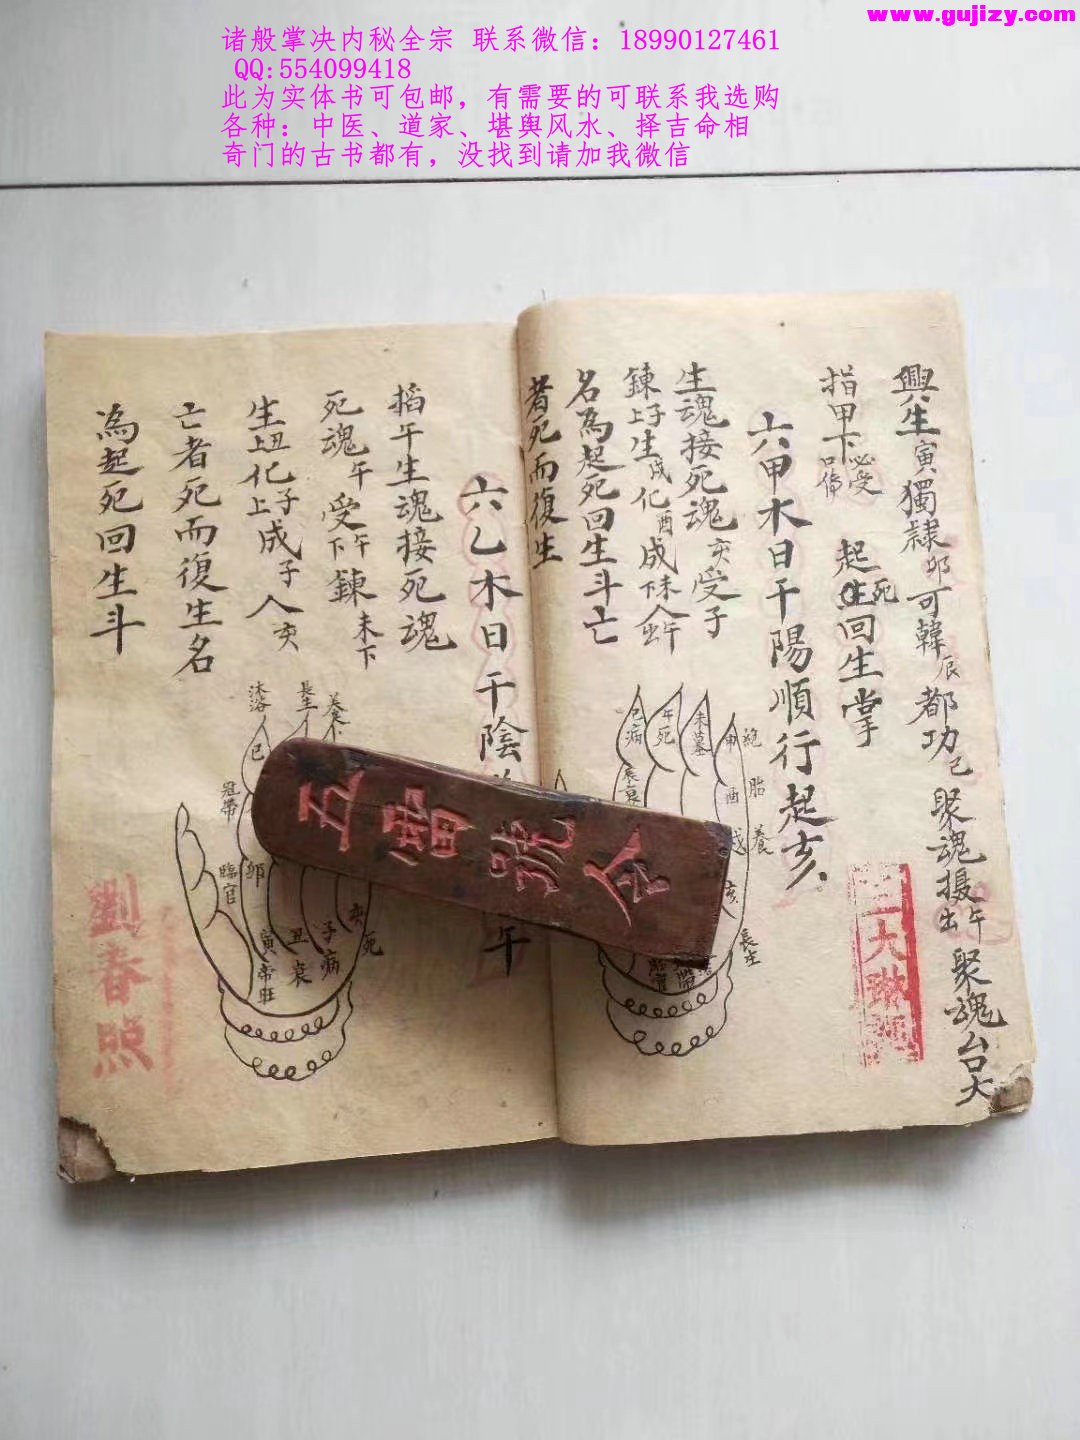 www.gujizy.com
诸般掌决内秘全宗 联系微信：18990127461
QQ:554099418
此为实体书可包邮，有需要的可联系我选购
各种：中医、道家、堪舆风水、择吉命相
奇门的古书都有，没找到请加我微信
興生寅獨隷卯可韓辰都功己聚魂摄出午聚魂台大
指甲下必受 起死回生掌
六甲木日干陽順行起亥
生魂接死魂亥受子
鍊上子生戌化酉成下未人出午
名為起死回生斗亡
者死而復生
巳病
午死
未墓
申絕
酉胎
戌養
亥
長生
辰衰
三大
六乙木日干陰
午
掐午生魂接死魂
死魂午受下午鍊未下
生上丑化上子成子人亥
亡者死而復生名
為起死回生斗
沐浴
長生
養
巳
冠帶
臨官
卯
寅帝旺
丑衰
子病
亥死
劉春照
五雷號令